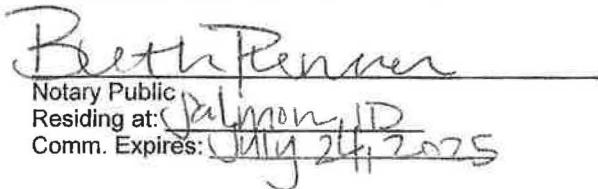 Beth Renner
Notary Public
Residing at: Salmon, ID
Comm. Expires: July 24, 2025